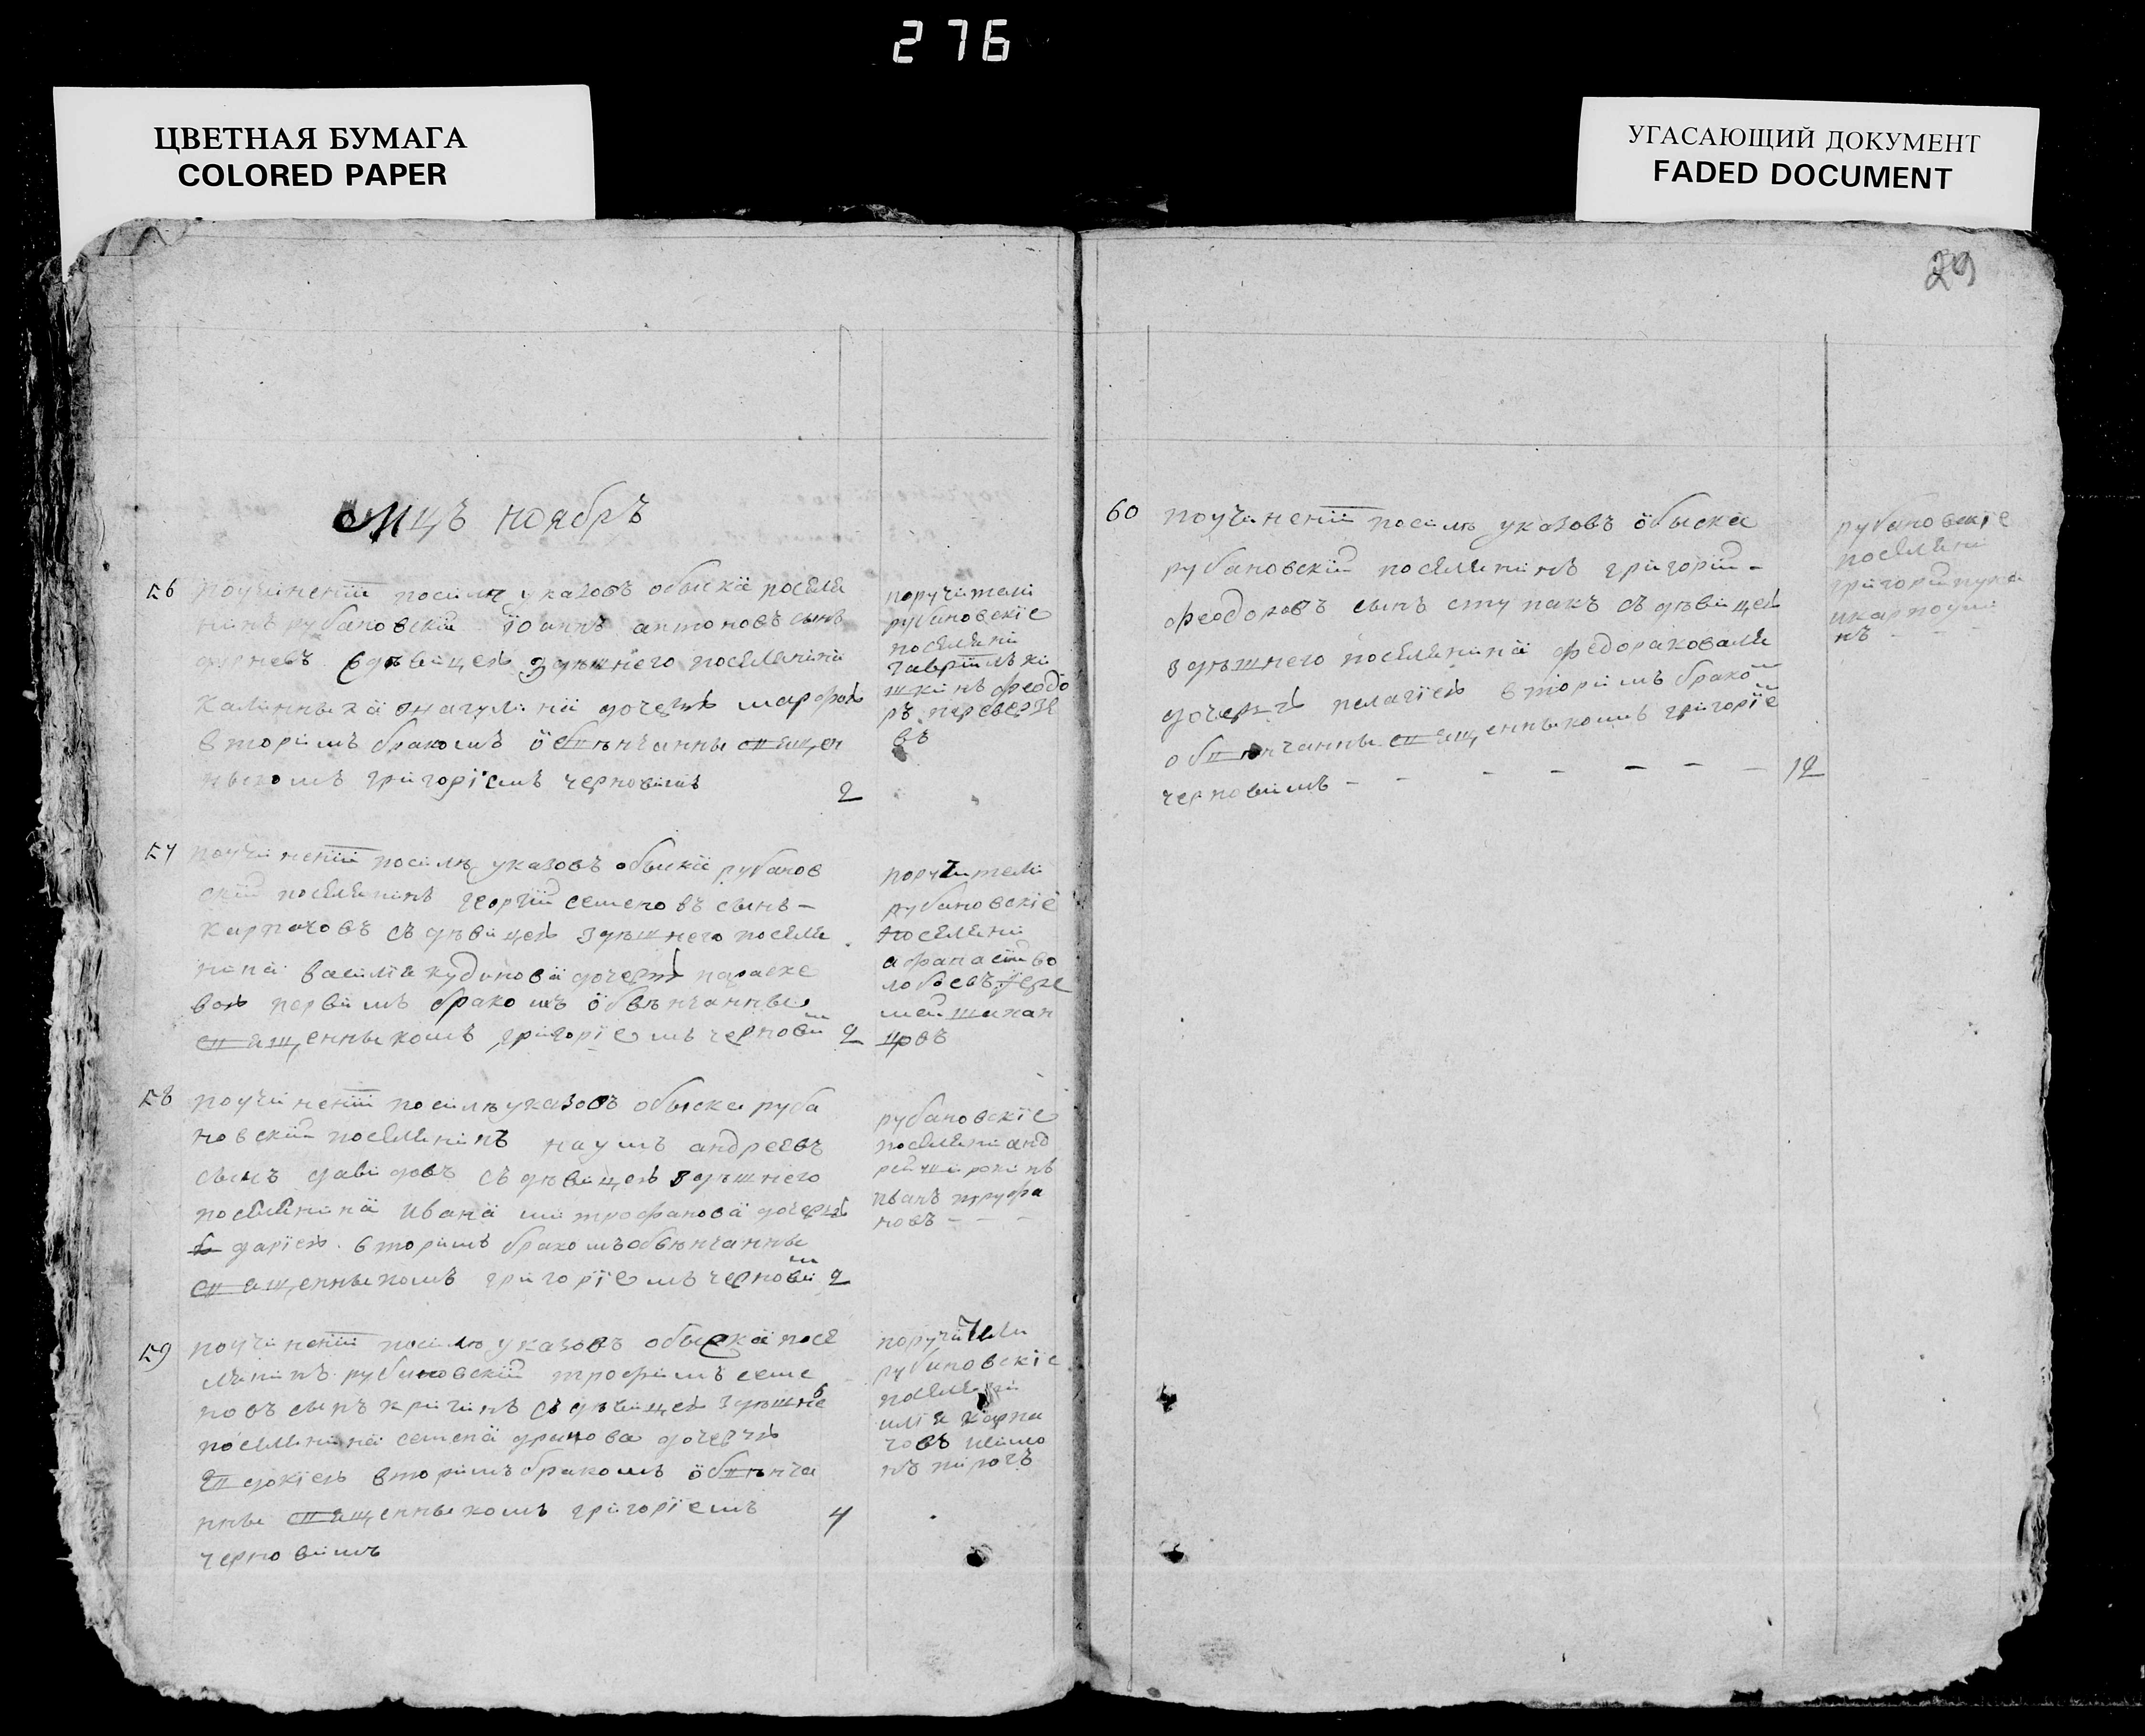 276
ЦВЕТНАЯ БУМАГА
COLORED PAPER
УГАСАЮЩИЙ ДОКУМЕНТ
FADED DOCUMENT
29
Мцъ ноябръ
56 поучинении посилѣ указовъ обыска поселя
нинъ рубановский Їоаннъ антоновъ сынъ
здѣшнего поселянина
дочерью марфою
вторимъ бракомъ обвѣнчанны священ
ныкомъ григоріемъ черновимъ 2
поручители
рубановскіе
поселяни
гаврїилъ ки
шкинъ феодо
ръ переверзе
въ
57 поучинении посилѣ указовъ обыска рубанов
ский поселянинъ георгий семеновъ сынъ
карпачовъ съ дѣвицею здѣшнего поселя
нина василия кудинова дочерью параске
вою первимъ бракомъ обвѣнчанны
священныкомъ григоріемъ черновим 2
поручители
рубановскіе
поселяни
афанасий во
лобоевъ
58 поучинении посилѣ указовъ обыска руба
новский поселянинъ наумъ андреевъ
сынъ давидовъ съ дѣвицею здѣшнего
поселянина ивана митрофанова дочерью
дарїею вторимъ бракомъ обвѣнчанны
священныкомъ григорїемъ черновим 2
рубановскїе
поселяни анд
рей широкинъ
иванъ труфа
новъ
59 поучинении посилѣ указовъ обыска посе
лянинъ рубановский трофимъ семе
новъ сынъ кричинъ съ дѣвицею здѣшнего
поселянина семена дочерью
евдокїею вторимъ бракомъ обвѣнча
нны священныкомъ григорїемъ 4
черновимъ
поручители
рубановскїе
поселяни
илия карпа
човъ
60 поучинении посилѣ указовъ обыска
рубановский поселянинъ григорий
феодоровъ сынъ ступакъ съ дѣвицею
здѣшнего поселянина федора ковали
дочерью пелагїею вторимъ браком
обвѣнчанны священныкомъ григорїем
черновимъ 12
рубановскїе
поселяни
григорий